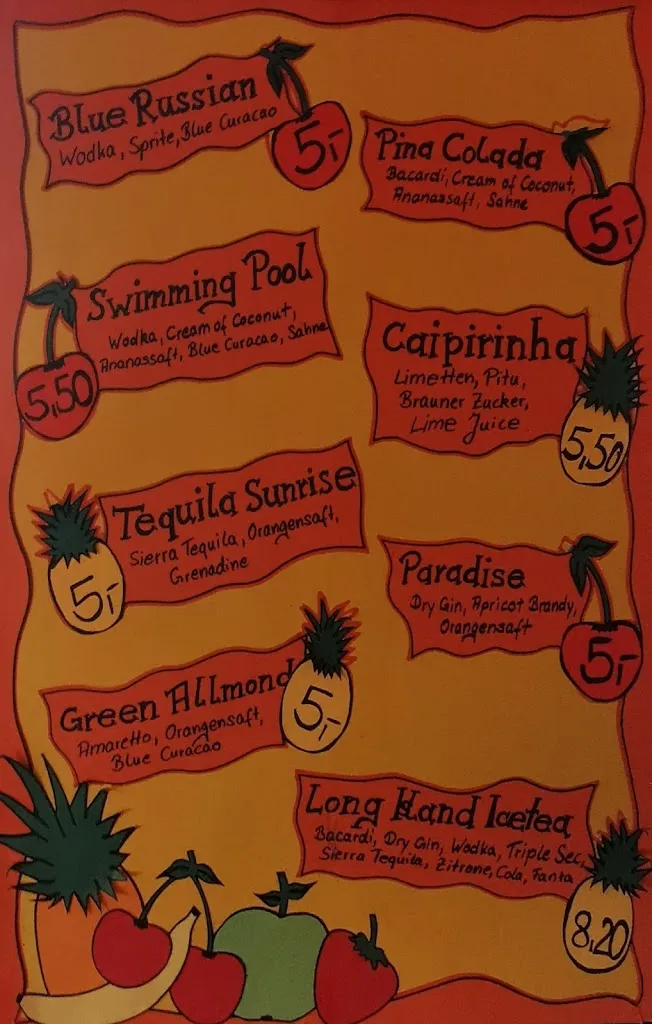 Blue Russian
Wodka, Sprite, Blue Curacao
5,-
Pina Colada
Bacardi, Cream of Coconut,
Ananassaft, Sahne
5,-
Swimming Pool
Wodka, Cream of Coconut,
Ananassaft, Blue Curacao, Sahne
5,50
Caipirinha
Limetten, Pitu,
Brauner Zucker,
Lime Juice
5,50
Tequila Sunrise
Sierra Tequila, Orangensaft,
Grenadine
5,-
Paradise
Dry Gin, Apricot Brandy,
Orangensaft
5,-
Green Allmond
Amaretto, Orangensaft,
Blue Curacao
5,-
Long Island Icetea
Bacardi, Dry Gin, Wodka, Triple Sec,
Sierra Tequila, Zitrone, Cola, Fanta
8,20